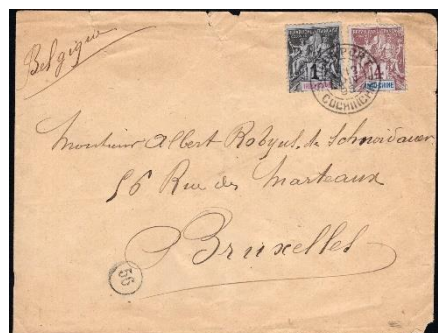 Belgique
1
4
INDOCHINE
COCHINCHINE
Monsieur Albert Robyns de Schneidauer
56 Rue des Marteaux
Bruxelles
56